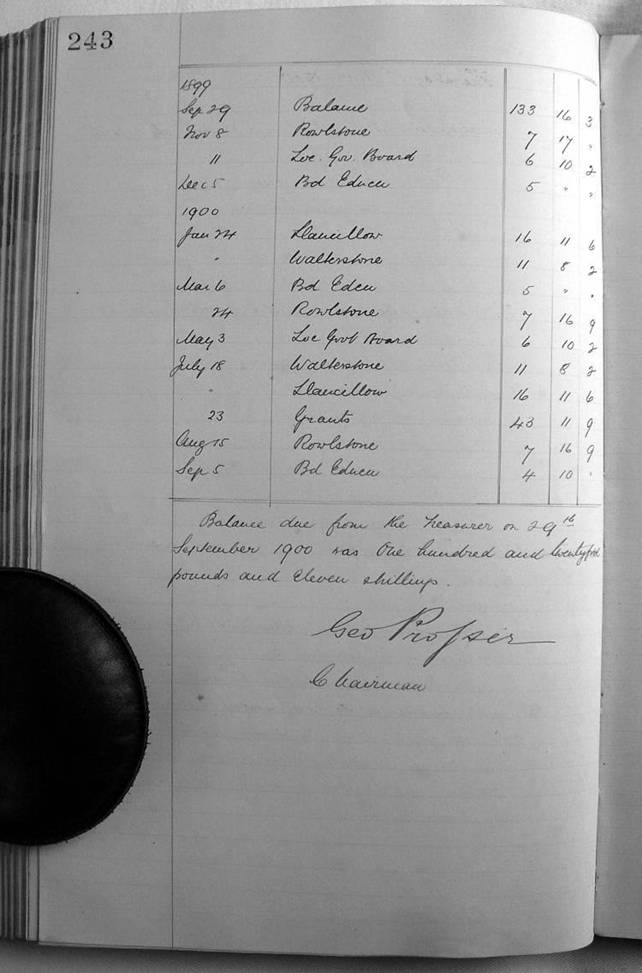 243
1899
Sep 29 Balance 133 16 3
Nov 8 Rowlstone 7 17 "
11 Loc. Gov. Board 6 10 2
Dec 5 Bd Educn 5 " "
1900
Jan 24 Llancillow 16 11 6
" Walterstone 11 8 2
Mar 6 Bd Educn 5 " "
24 Rowlstone 7 16 9
May 3 Loc Govt Board 6 10 2
July 18 Walterstone 11 8 2
" Llancillow 16 11 6
23 Grants 43 11 9
Aug 15 Rowlstone 7 16 9
Sep 5 Bd Educn 4 10 "
Balance due from the Treasurer on 29th
September 1900 was One hundred and
pounds and Eleven shillings.
Geo Prosser
Chairman